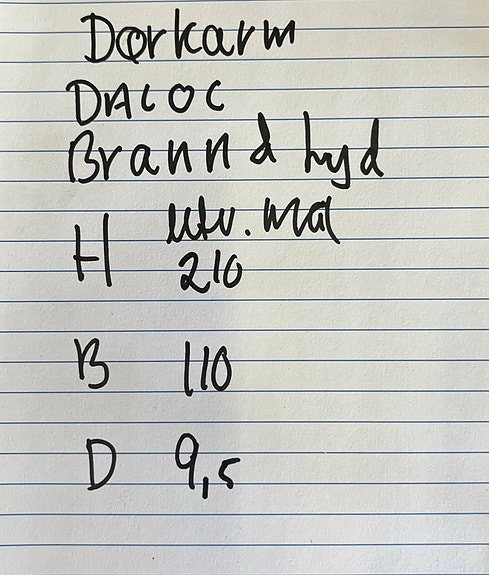 Dørkarm
DALOC
Brann d lyd
H utv. mål
210
B 110
D 9,5